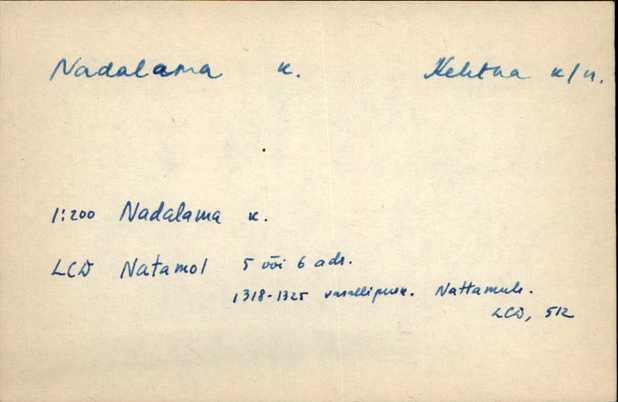 Nadalama k. Kehtna k/n.
1:200 Nadalama k.
LCD Natamol 5 või 6 adr.
1318-1325 vasallipere. Nattamule.
LCD, 512